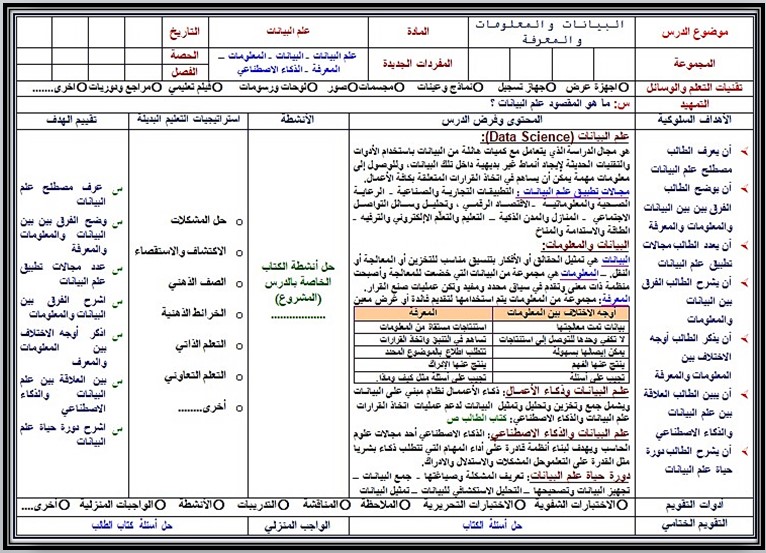 موضوع الدرس
البيانات والمعلومات والمعرفة
المادة
علم البيانات
التاريخ
المجموعة
المفردات الجديدة
علم البيانات - البيانات - المعلومات –
المعرفة - الذكاء الاصطناعي
الحصة
الفصل
تقنيات التعلم والوسائل
اجهزة عرض
جهاز تسجيل
نماذج وعينات
مجسمات
صور
لوحات ورسومات
فيلم تعليمي
مراجع ودوريات
اخرى.......
التمهيد
س: ما هو المقصود علم البيانات ؟
الأهداف السلوكية
المحتوى وعرض الدرس
الأنشطة
استراتيجيات التعليم البديلة
تقييم الهدف
أن يعرف الطالب
مصطلح علم البيانات
أن يوضح الطالب
الفرق بين بين البيانات
والمعلومات والمعرفة
أن يعدد الطالب مجالات
تطبيق علم البيانات
أن يشرح الطالب الفرق
بين البيانات
والمعلومات
أن يذكر الطالب أوجه
الاختلاف بين
المعلومات والمعرفة
أن يبين الطالب العلاقة
بين علم البيانات
والذكاء الاصطناعي
أن يشرح الطالب دورة
حياة علم البيانات
علم البيانات (Data Science):
هو مجال الدراسة الذي يتعامل مع كميات هائلة من البيانات باستخدام الأدوات
والتقنيات الحديثة لإيجاد أنماط غير بديهية داخل تلك البيانات، وللوصول إلى
معلومات مهمة يمكن أن يساهم في اتخاذ القرارات المتعلقة بكافة الأعمال.
مجالات تطبيق علم البيانات : التطبيقات التجارية والصناعية - الرعاية
الصحية والمعلوماتية - الاقتصاد الرقمي ، وتحليل وسائل التواصل
الاجتماعي - المنازل والمدن الذكية – التعليم والتعلم الإلكتروني والترفيه -
الطاقة والاستدامة والمناخ
البيانات والمعلومات:
البيانات هي تمثيل الحقائق أو الأفكار بتنسيق مناسب للتخزين أو المعالجة أو
النقل. – المعلومات هي مجموعة من البيانات التي خضعت للمعالجة وأصبحت
منظمة ذات معنى وتقدم في سياق محدد ومفيد ولكن عمليات صنع القرار.
المعرفة: مجموعة من المعلومات يتم استخدامها لتقديم فائدة أو غرض معين
أوجه الاختلاف بين المعلومات
المعرفة
بيانات تمت معالجتها
استنتاجات مستقاة من المعلومات
لا تكفي وحدها للتوصل إلى استنتاجات
تساهم في التنبؤ واتخاذ القرارات
يمكن إيصالها بسهولة
تتطلب اطلاع بالموضوع المحدد
ينتج عنها الفهم
ينتج عنها الإدراك
تجيب على أسئلة
تجيب على أسئلة مثل كيف ومذا.
علم البيانات وذكاء الأعمال: ذكاء الأعمال نظام مبني على البيانات
ويشمل جمع وتخزين وتحليل وتمثيل البيانات لدعم عمليات اتخاذ القرارات
علم البيانات والذكاء الاصطناعي: كتاب الطالب ص
علم البيانات والذكاء الاصطناعي: الذكاء الاصطناعي أحد مجالات علوم
الحاسب ويهدف لبناء أنظمة قادرة على أداء المهام التي تتطلب ذكاء بشريا
مثل القدرة على التعلم وحل المشكلات والاستدلال والادراك.
دورة حياة علم البيانات: تعريف المشكلة وصياغتها - جمع البيانات –
تجهيز البيانات وتصحيحها - التحليل الاستكشافي للبيانات – تمثيل البيانات
حل أنشطة الكتاب
الخاصة بالدرس
(المشروع)
.................
حل المشكلات
الاكتشاف والاستقصاء
الصف الذهني
الخرائط الذهنية
التعلم الذاتي
التعلم التعاوني
أخرى........
س عرف مصطلح علم
البيانات
س وضح الفرق بين بين
البيانات والمعلومات
والمعرفة
س عدد مجالات تطبيق
علم البيانات
س اشرح الفرق بين
البيانات والمعلومات
س اذكر أوجه الاختلاف
بين المعلومات
والمعرف
س بين العلاقة بين علم
البيانات والذكاء
الاصطناعي
س اشرح دورة حياة علم
البيانات
أدوات التقويم
الاختبارات الشفوية
الاختبارات التحريرية
الملاحظة
المناقشة
التدريبات
الأنشطة
الواجبات المنزلية
أخرى....
التقويم الختامي
حل أسئلة الكتاب
الواجب المنزلي
حل أسئلة كتاب الطالب